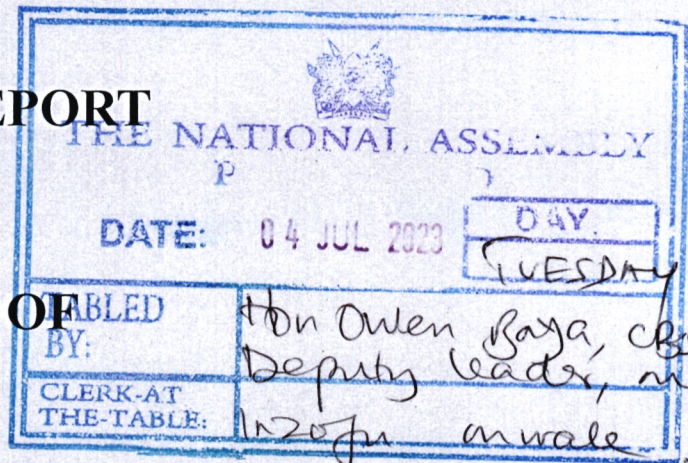 EPORT
THE NATIONAL ASSEMBLY
P
DATE: 04 JUL 2023
DAY.
TUESDAY
OF
TABLED BY:
Hon Owen Baya, CBS
Deputy leader,
CLERK-AT THE-TABLE:
Inzofu mwale